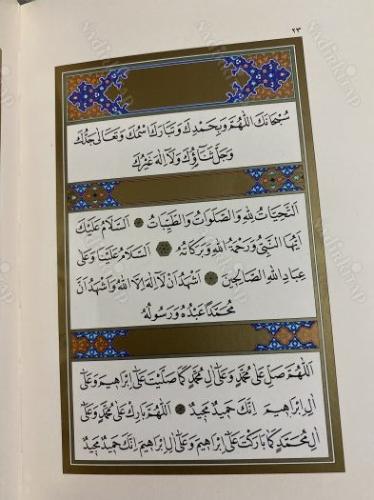 ٢٣
سُبْحَانَكَ اللّٰهُمَّ وَبِحَمْدِكَ وَتَبَارَكَ اسْمُكَ وَتَعَالٰى جَدُّكَ
وَجَلَّ ثَنَاؤُكَ وَلَا اِلٰهَ غَيْرُكَ
اَلتَّحِيَّاتُ لِلّٰهِ وَالصَّلَوَاتُ وَالطَّيِّبَاتُ ۞ اَلسَّلَامُ عَلَيْكَ
اَيُّهَا النَّبِيُّ وَرَحْمَةُ اللّٰهِ وَبَرَكَاتُهُ ۞ اَلسَّلَامُ عَلَيْنَا وَعَلٰى
عِبَادِ اللّٰهِ الصَّالِحِينَ ۞ اَشْهَدُ اَنْ لَا اِلٰهَ اِلَّا اللّٰهُ وَاَشْهَدُ اَنَّ
مُحَمَّدًا عَبْدُهُ وَرَسُولُهُ
اَللّٰهُمَّ صَلِّ عَلٰى مُحَمَّدٍ وَعَلٰى اٰلِ مُحَمَّدٍ كَمَا صَلَّيْتَ عَلٰى اِبْرَاهِيمَ وَعَلٰى
اٰلِ اِبْرَاهِيمَ اِنَّكَ حَمِيدٌ مَجِيدٌ ۞ اَللّٰهُمَّ بَارِكْ عَلٰى مُحَمَّدٍ وَعَلٰى
اٰلِ مُحَمَّدٍ كَمَا بَارَكْتَ عَلٰى اِبْرَاهِيمَ وَعَلٰى اٰلِ اِبْرَاهِيمَ اِنَّكَ حَمِيدٌ مَجِيدٌ